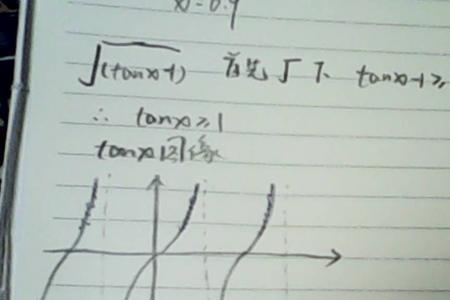 x=0.9
√(tanx-1) 首先√下 tanx-1≥
∴ tanx≥1
tanx图像